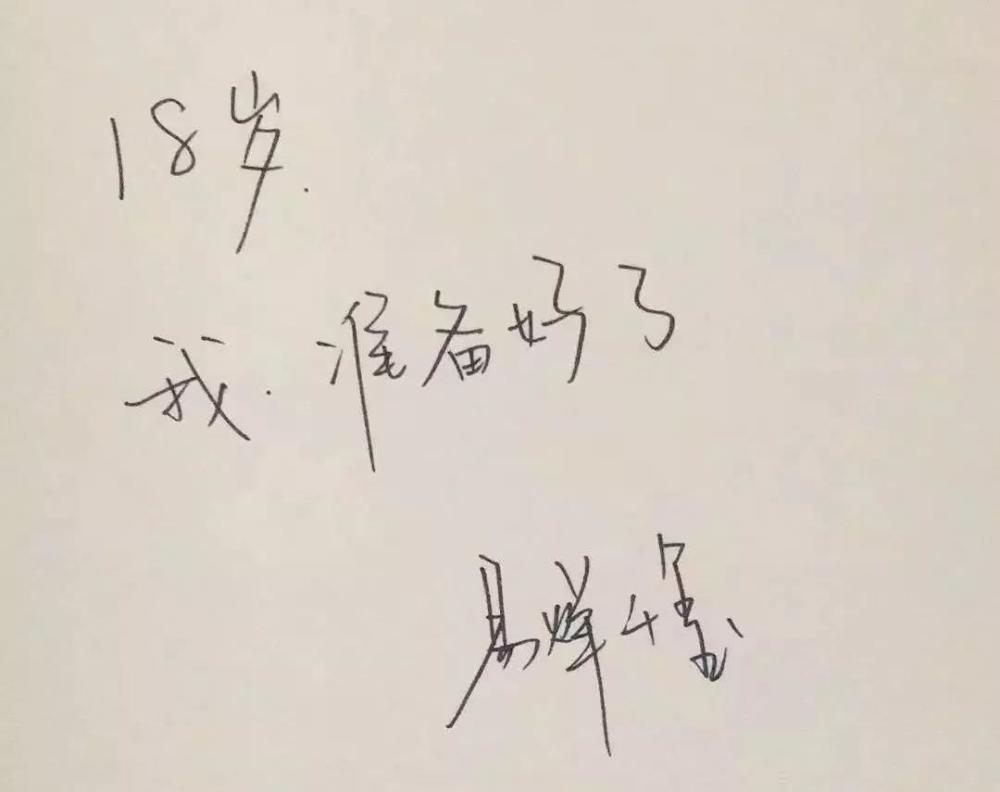 18岁.
我.准备好了
易烊千玺